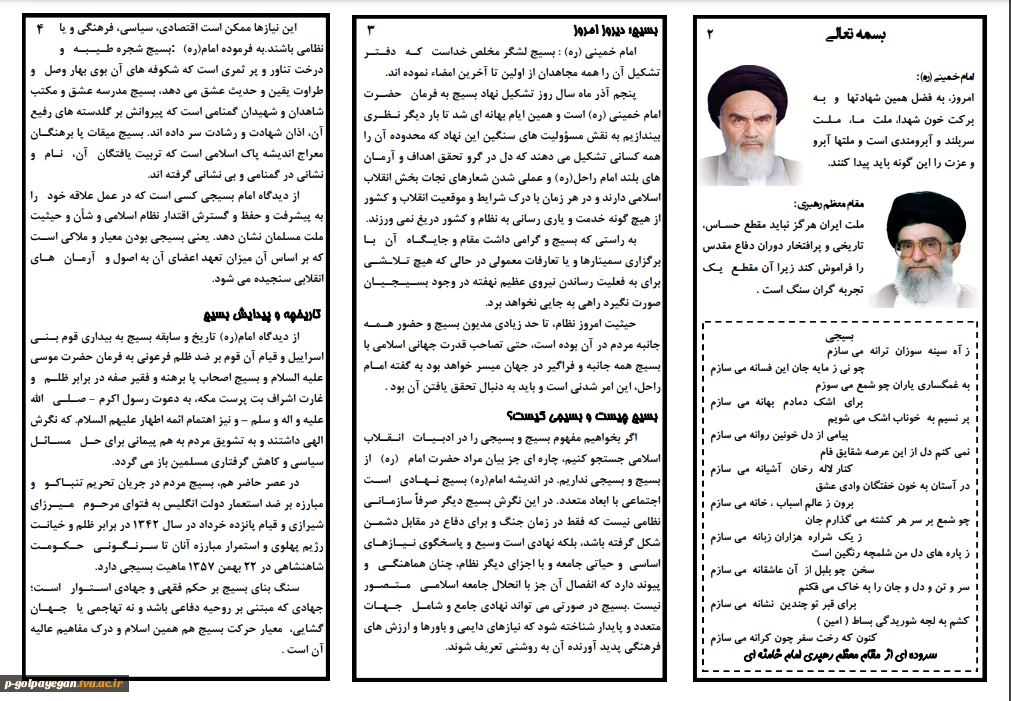 ۲
بسمه تعالی
امام خمینی (ره):
امروز، به فضل همین شهادتها و به
برکت خون شهدا، ملت ما، ملت
سربلند و آبرومندی است و ملتها آبرو
و عزت را این گونه باید پیدا کنند.
مقام معظم رهبری:
ملت ایران هرگز نباید مقطع حساس،
تاریخی و پرافتخار دوران دفاع مقدس
را فراموش کند زیرا آن مقطع یک
تجربه گران سنگ است .
بسیجی
ز آه سینه سوزان ترانه می سازم
چو نی ز مایه جان این فسانه می سازم
به غمگساری یاران چو شمع می سوزم
برای اشک دمادم بهانه می سازم
پر نسیم به خوناب اشک می شویم
پیامی از دل خونین روانه می سازم
نمی کنم دل از این عرصه شقایق فام
کنار لاله رخان آشیانه می سازم
در آستان به خون خفتگان وادی عشق
برون ز عالم اسباب ، خانه می سازم
چو شمع بر سر هر کشته می گذارم جان
ز یک شراره هزاران زبانه می سازم
ز پاره های دل من شلمچه رنگین است
سخن چو بلبل از آن عاشقانه می سازم
سر و تن و دل و جان را به خاک می فکنم
برای قبر تو چندین نشانه می سازم
کشم به لجه شوریدگی بساط ( امین )
کنون که رخت سفر چون کرانه می سازم
سروده ای از مقام معظم رهبری امام خامنه ای
۳
بسیج، دیروز امروز
امام خمینی (ره) : بسیج لشگر مخلص خداست که دفتر
تشکیل آن را همه مجاهدان از اولین تا آخرین امضاء نموده اند.
پنجم آذر ماه سال روز تشکیل نهاد بسیج به فرمان حضرت
امام خمینی (ره) است و همین ایام بهانه ای شد تا بار دیگر نظری
بیندازیم به نقش مسؤولیت های سنگین این نهاد که محدوده آن را
همه کسانی تشکیل می دهند که دل در گرو تحقق اهداف و آرمان
های بلند امام راحل(ره) و عملی شدن شعارهای نجات بخش انقلاب
اسلامی دارند و در هر زمان با درک شرایط و موقعیت انقلاب و کشور
از هیچ گونه خدمت و یاری رسانی به نظام و کشور دریغ نمی ورزند.
به راستی که بسیج و گرامی داشت مقام و جایگاه آن با
برگزاری سمینارها و یا تعارفات معمولی در حالی که هیچ تلاشی
برای به فعلیت رساندن نیروی عظیم نهفته در وجود بسیجیان
صورت نگیرد راهی به جایی نخواهد برد.
حیثیت امروز نظام، تا حد زیادی مدیون بسیج و حضور همه
جانبه مردم در آن بوده است، حتی تصاحب قدرت جهانی اسلامی با
بسیج همه جانبه و فراگیر در جهان میسر خواهد بود به گفته امام
راحل، این امر شدنی است و باید به دنبال تحقق یافتن آن بود .
بسیج چیست و بسیجی کیست؟
اگر بخواهیم مفهوم بسیج و بسیجی را در ادبیات انقلاب
اسلامی جستجو کنیم، چاره ای جز بیان مراد حضرت امام (ره) از
بسیج و بسیجی نداریم. در اندیشه امام(ره) بسیج نهادی است
اجتماعی با ابعاد متعدد. در این نگرش بسیج دیگر صرفاً سازمانی
نظامی نیست که فقط در زمان جنگ و برای دفاع در مقابل دشمن
شکل گرفته باشد، بلکه نهادی است وسیع و پاسخگوی نیازهای
اساسی و حیاتی جامعه و با اجزای دیگر نظام، چنان هماهنگی و
پیوند دارد که انفصال آن جز با انحلال جامعه اسلامی متصور
نیست .بسیج در صورتی می تواند نهادی جامع و شامل جهات
متعدد و پایدار شناخته شود که نیازهای دایمی و باورها و ارزش های
فرهنگی پدید آورنده آن به روشنی تعریف شوند.
۴
این نیازها ممکن است اقتصادی، سیاسی، فرهنگی و یا
نظامی باشند.به فرموده امام(ره) :بسیج شجره طیبه و
درخت تناور و پر ثمری است که شکوفه های آن بوی بهار وصل و
طراوت یقین و حدیث عشق می دهد، بسیج مدرسه عشق و مکتب
شاهدان و شهیدان گمنامی است که پیروانش بر گلدسته های رفیع
آن، اذان شهادت و رشادت سر داده اند. بسیج میقات پا برهنگان و
معراج اندیشه پاک اسلامی است که تربیت یافتگان آن، نام و
نشانی در گمنامی و بی نشانی گرفته اند.
از دیدگاه امام بسیجی کسی است که در عمل علاقه خود را
به پیشرفت و حفظ و گسترش اقتدار نظام اسلامی و شأن و حیثیت
ملت مسلمان نشان دهد. یعنی بسیجی بودن معیار و ملاکی است
که بر اساس آن میزان تعهد اعضای آن به اصول و آرمان های
انقلابی سنجیده می شود.
تاریخچه و پیدایش بسیج
از دیدگاه امام(ره) تاریخ و سابقه بسیج به بیداری قوم بنی
اسراییل و قیام آن قوم بر ضد ظلم فرعونی به فرمان حضرت موسی
علیه السلام و بسیج اصحاب پا برهنه و فقیر صفه در برابر ظلم و
غارت اشراف بت پرست مکه، به دعوت رسول اکرم – صلی الله
علیه و اله و سلم – و نیز اهتمام ائمه اطهار علیهم السلام. که نگرش
الهی داشتند و به تشویق مردم به هم پیمانی برای حل مسائل
سیاسی و کاهش گرفتاری مسلمین باز می گردد.
در عصر حاضر هم، بسیج مردم در جریان تحریم تنباکو و
مبارزه بر ضد استعمار دولت انگلیس به فتوای مرحوم میرزای
شیرازی و قیام پانزده خرداد در سال ۱۳۴۲ در برابر ظلم و خیانت
رژیم پهلوی و استمرار مبارزه آنان تا سرنگونی حکومت
شاهنشاهی در ۲۲ بهمن ۱۳۵۷ ماهیت بسیجی دارد.
سنگ بنای بسیج بر حکم فقهی و جهادی استوار است؛
جهادی که مبتنی بر روحیه دفاعی باشد و نه تهاجمی یا جهان
گشایی، معیار حرکت بسیج هم همین اسلام و درک مفاهیم عالیه
آن است .
p-golpayegan.tvu.ac.ir